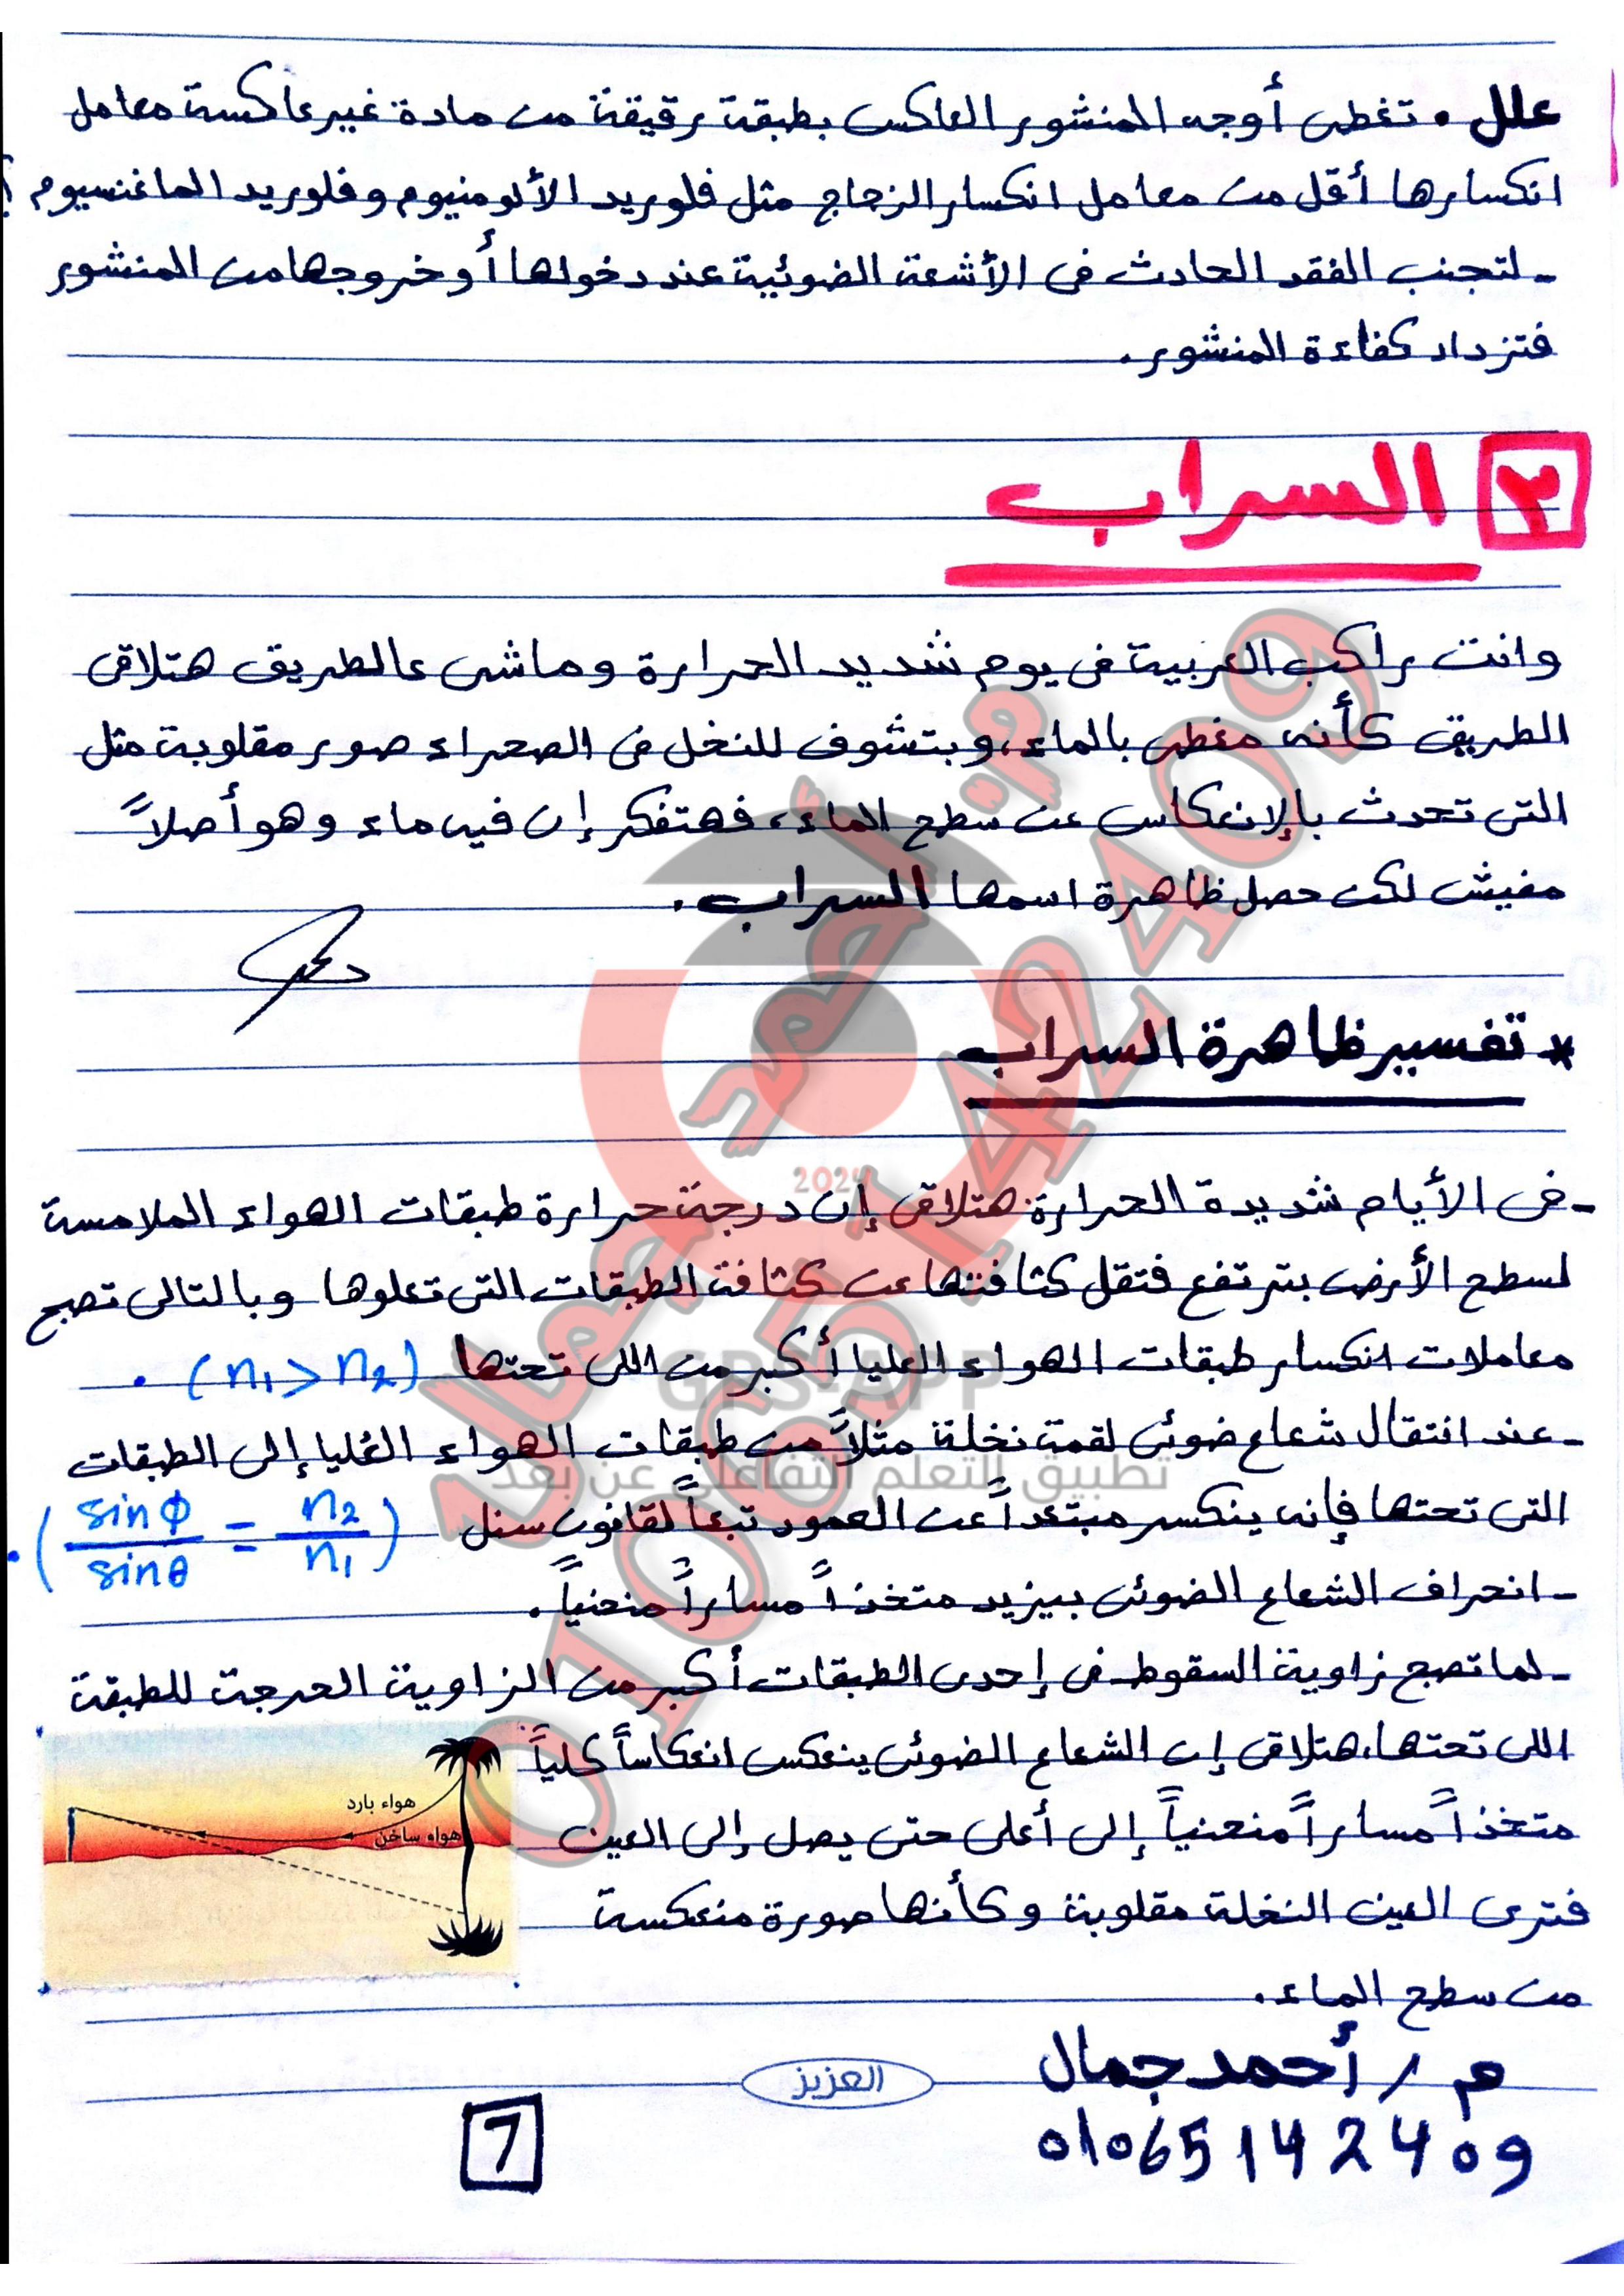 علل . تغطى أوجه المنشور العاكس بطبقة رقيقة من مادة غير عاكسة معامل
انكسارها أقل من معامل انكسار الزجاج مثل فلوريد الألومنيوم وفلوريد الماغنسيوم ؟
- لتجنب الفقد الحادث فى الأشعة الضوئية عند دخولها أو خروجها من المنشور
فتزداد كفاءة المنشور.
٣ السراب
وانت راكب العربية فى يوم شديد الحرارة وماشى عالطريق هتلاقى
الطريق كأنه مغطى بالماء، وبتشوف للنخل فى الصحراء صور مقلوبة مثل
التى تحدث بالإنعكاس عن سطح الماء، فهتفكر إن فيه ماء وهو أصلاً
مفيش لكن حصل ظاهرة اسمها السراب.
* تفسير ظاهرة السراب
- فى الأيام شديدة الحرارة هتلاقى إن درجة حرارة طبقات الهواء الملامسة
لسطح الأرض بترتفع فتقل كثافتها عن كثافة الطبقات التى تعلوها وبالتالى تصبح
معاملات انكسار طبقات الهواء العليا أكبر من اللى تحتها (n1 > n2) .
- عند انتقال شعاع ضوئى لقمة نخلة مثلاً من طبقات الهواء العُليا إلى الطبقات
التى تحتها فإنه ينكسر مبتعداً عن العمود تبعاً لقانون سنل (sinφ/sinθ = n2/n1) .
- انحراف الشعاع الضوئى بيزيد متخذاً مساراً منحنياً.
- لما تصبح زاوية السقوط فى إحدى الطبقات أكبر من الزاوية الحرجة للطبقة
اللى تحتها، هتلاقى إن الشعاع الضوئى ينعكس انعكاساً كلياً
متخذاً مساراً منحنياً إلى أعلى حتى يصل إلى العين
فترى العين النخلة مقلوبة وكأنها صورة منعكسة
من سطح الماء.
هواء بارد
هواء ساخن
م / أحمد جمال
01065142409
العزيز
7
م / أحمد جمال
01065142409
2024
GPS-APP
تطبيق للتعلم التفاعلي عن بعد